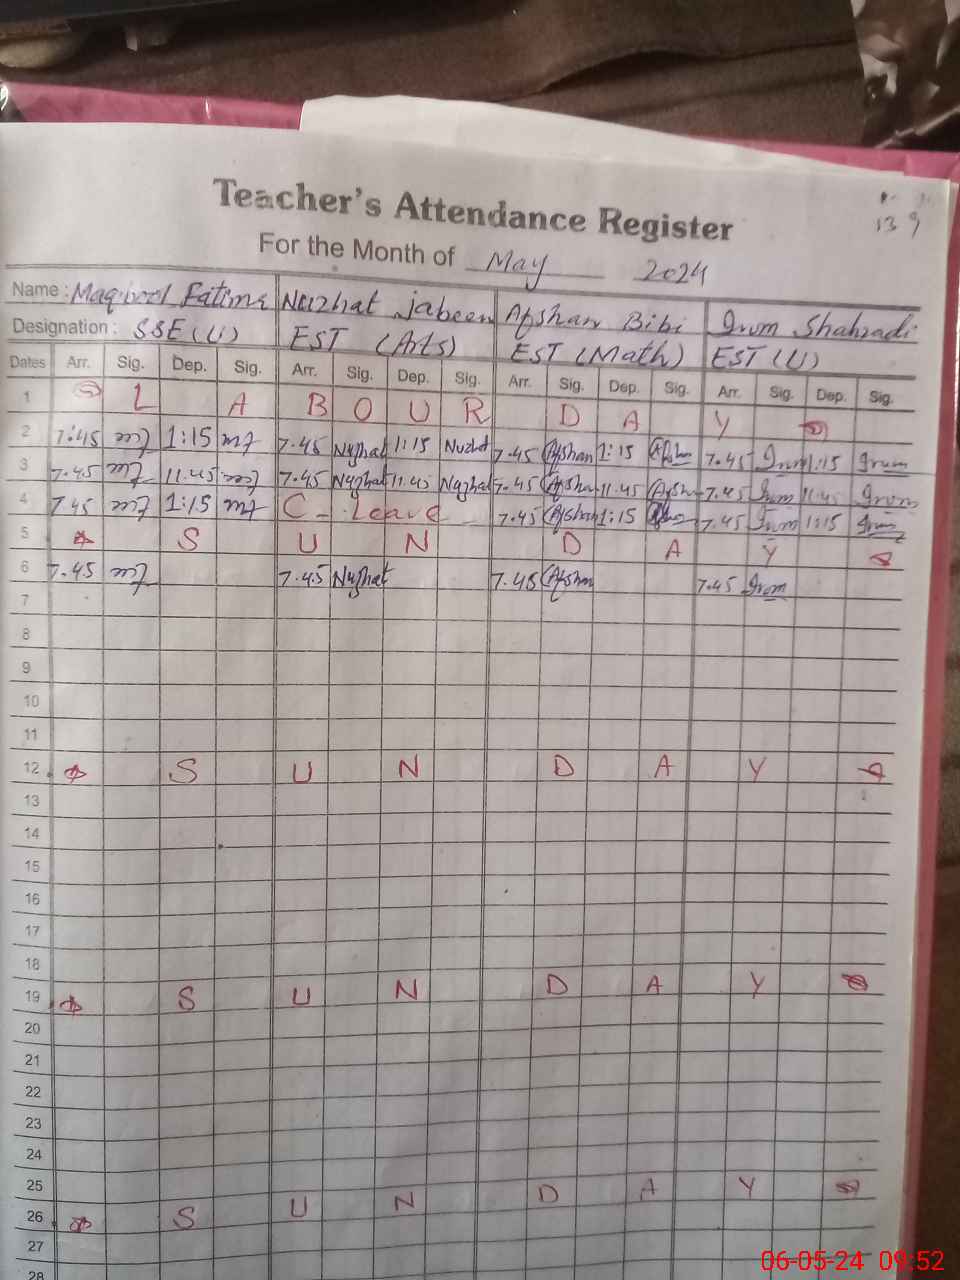 Teacher's Attendance Register
For the Month of May 2024
139
Name : Maqbool Fatima Nuzhat jabeen Afshan Bibi Irum Shahzadi
Designation : SSE (U) EST (Arts) EST (Math) EST (U)
Dates Arr. Sig. Dep. Sig. Arr. Sig. Dep. Sig. Arr. Sig. Dep. Sig. Arr. Sig. Dep. Sig.
1 L A B O U R D A Y
2 7:45 1:15 7.45 Nuzhat 1:15 Nuzhat 7.45 Afshan 1:15 Afshan 7.45 Irum 1:15 Irum
3 7.45 11.45 7.45 Nuzhat 11.45 Nuzhat 7.45 Afshan 11.45 Afshan 7.45 Irum 11.45 Irum
4 7.45 1:15 C - Leave 7.45 Afshan 1:15 7.45 Irum 1:15 Irum
5 S U N D A Y
6 7.45 7.45 Nuzhat 7.45 Afshan 7.45 Irum
7
8
9
10
11
12 S U N D A Y
13
14
15
16
17
18
19 S U N D A Y
20
21
22
23
24
25
26 S U N D A Y
27
28
06-05-24 09:52